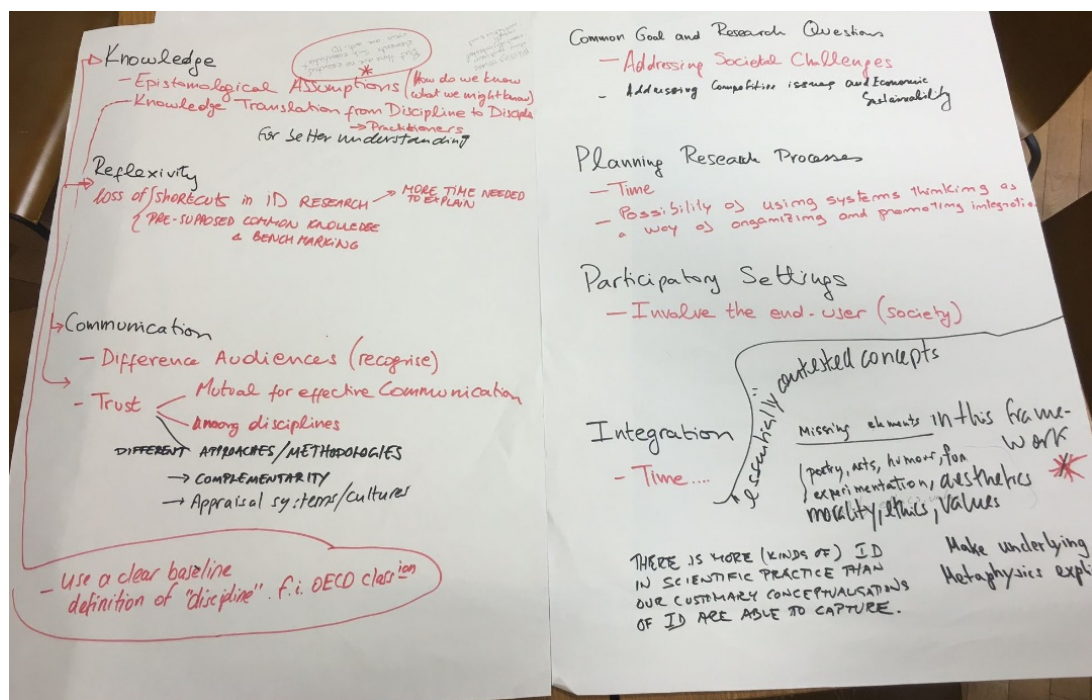 Knowledge
- Epistomological Assumptions (How do we know
what we might know)
- Knowledge Translation from Discipline to Discipli
→ Practitioners
For better understanding
Reflexivity
loss of shortcuts in ID RESEARCH → MORE TIME NEEDED
TO EXPLAIN
PRE-SUPPOSED COMMON KNOWLEDGE
& BENCHMARKING
Communication
- Difference Audiences (recognise)
- Trust
Mutual for effective Communication
Among disciplines
DIFFERENT APPROACHES/METHODOLOGIES
→ COMPLEMENTARITY
→ Appraisal systems/cultures
- use a clear baseline
definition of "discipline". f.i. OECD classion
Common Goal and Research Questions
- Addressing Societal Challenges
- Addressing Competitive issues and Economic
Sustainability
Planning Research Processes
- Time
- Possibility of using systems thinking as
a way of organizing and promoting integratio
Participatory Settings
- Involve the end-user (society)
"essentially contested concepts
Integration
- Time....
Missing elements in this frame-
work
poetry, arts, humor, fun
experimentation, aesthetics
morality, ethics, values
THERE IS MORE (KINDS OF) ID
IN SCIENTIFIC PRACTICE THAN
OUR CUSTOMARY CONCEPTUALISATIONS
OF ID ARE ABLE TO CAPTURE.
Make underlying
Metaphysics expli